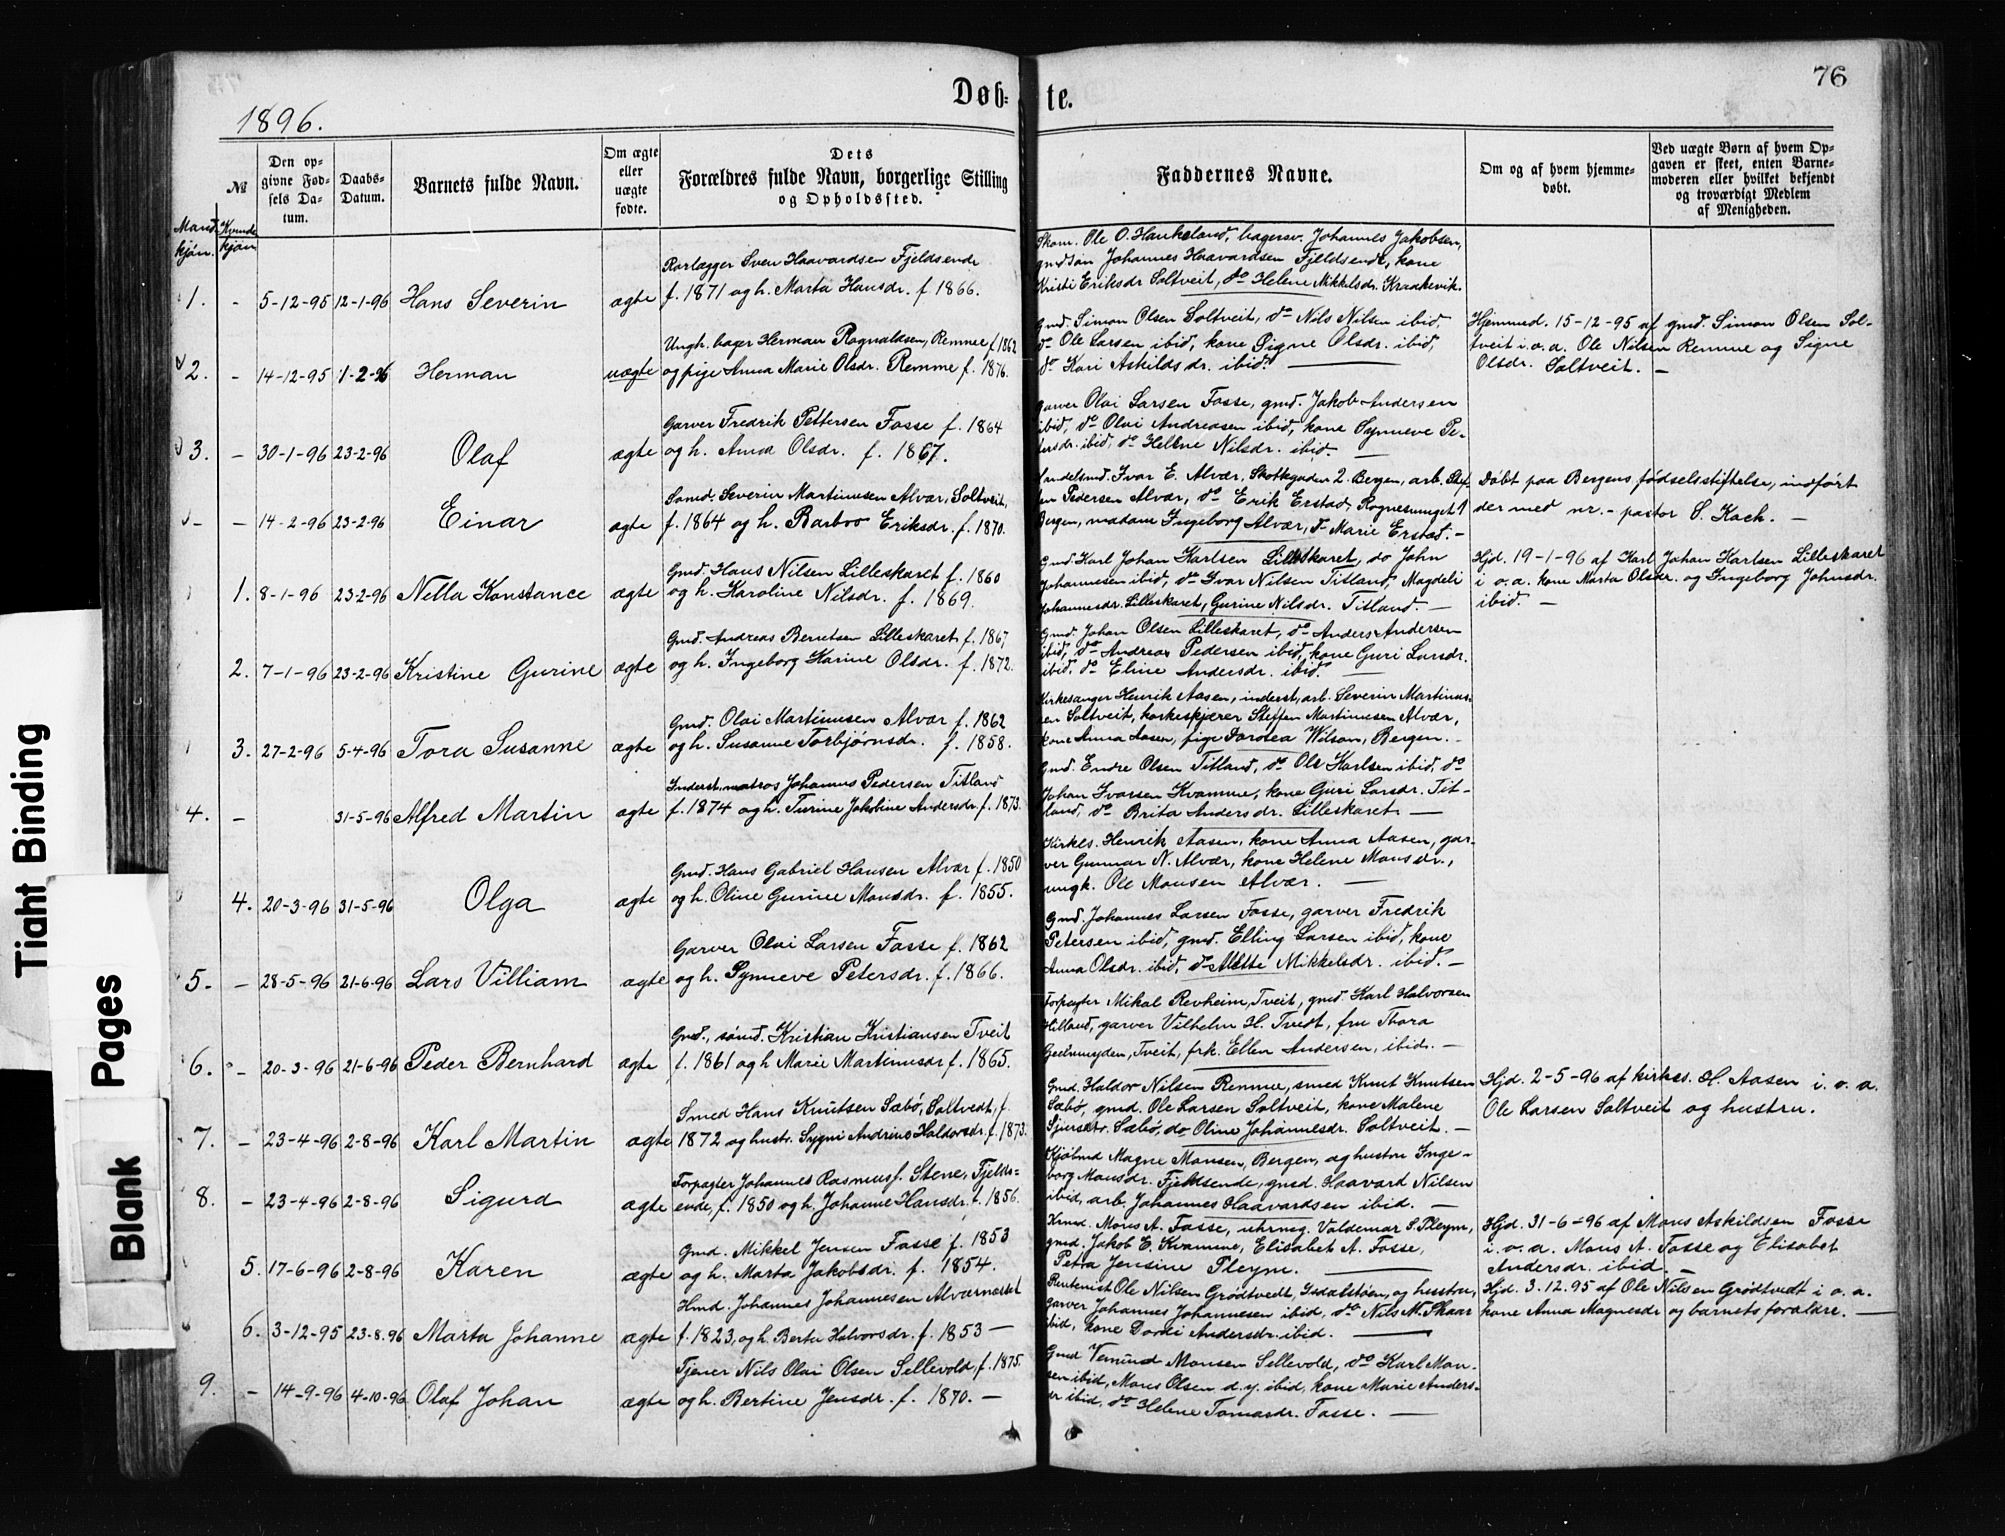 76
Døb-te.
1896.
№
Den op-
givne Fød-
sels Da-
tum.
Daabs-
Datum.
Barnets fulde Navn.
Om ægte
eller
uægte
fødte.
Dets
Forældres fulde Navn, borgerlige Stilling
og Opholdssted.
Faddernes Navne.
Om og af hvem hjemme-
døbt.
Ved uægte Børn af hvem Op-
gaven er skeet, enten Barne-
moderen eller hvilket bekjendt
og troværdigt Medlem
af Menigheden.
Mand-
kjøn.
Kvinde
kjøn
1. - 5-12-95 12-1-96 Hans Severin ægte
Rorlægger Sven Haavardsen Fjeldsende
f. 1871 og h. Marta Hansdr. f. 1866.
Skom. Ole O. Haukeland, bagersv. Johannes Jakobsen,
gmdsøn Johannes Haavardsen Fjeldsende, kone
Kristi Eriksdr Soltveit, do Helene Mikkelsdr. Kraakevik.
2. - 14-12-95 1-2-96 Herman uægte
Ungk. bager Herman Rognaldsen, Remme f. 1862
og pige Anna Marie Olsdr. Remme f. 1876.
Gmd. Simon Olsen Soltveit, do Nils Nilsen ibid,
do Ole Larsen ibid, kone Signe Olsdr. ibid,
do Kari Askildsdr. ibid. —
Hjemmed. 15-12-95 af gmd. Simon Olsen Sol-
tveit i.o.a. Ole Nilsen Remme og Signe
Olsdr. Soltveit. —
3. - 30-1-96 23-2-96 Olaf ægte
Garver Fredrik Pettersen Fosse f. 1864
og h. Anna Olsdr. f. 1867.
Garver Olai Larsen Fosse, gmd. Jakob Andersen
ibid, do Olai Andreasen ibid, kone Synneve Pe-
tersdr. ibid, do Helene Nilsdr. ibid. —
- - 14-2-96 23-2-96 Einar ægte
Sømd. Severin Martinusen Alvær, Soltveit,
f. 1864 og h. Barbro Eriksdr. f. 1870.
Handelsmd. Ivar E. Alvær, Skottegaden 2 Bergen, arb. Stef-
fen Pedersen Alvær, do Erik Erstad, Rognesmuget 1
Bergen, madam Ingeborg Alvær, do Marie Erstad. —
Døbt paa Bergens fødselsstiftelse, indført
der med nr. - pastor S. Koch. —
1. 8-1-96 23-2-96 Nella Konstance ægte
Gmd. Hans Nilsen Lilleskaret f. 1860
og h. Karoline Nilsdr. f. 1869.
Gmd. Karl Johan Karlsen Lilleskaret, do John
Johannesen ibid, do Ivar Nilsen Titland, Magdeli
Johannesdr. Lilleskaret, Gurine Nilsdr. Titland. —
Hjd. 19-1-96 af Karl Johan Karlsen Lilleskaret
i o.a. kone Marta Olsdr. og Ingeborg Johnsdr.
ibid. —
2. 7-1-96 23-2-96 Kristine Gurine ægte
Gmd. Andreas Berntsen Lilleskaret f. 1867
og h. Ingeborg Karine Olsdr. f. 1872.
Gmd. Johan Olsen Lilleskaret, do Anders Andersen
ibid, do Andreas Pedersen ibid, kone Guri Larsdr.
ibid. do Eline Andersdr. ibid. —
3. 27-2-96 5-4-96 Tora Susanne ægte
Gmd. Olai Martinusen Alvær f. 1862
og h. Susanne Torbjørnsdr. f. 1858.
Kirkesanger Henrik Aasen, inderst, arb. Severin Martinus-
en Soltveit, korkeskjærer Steffen Martinusen Alvær,
kone Anna Aasen, pige Dorotea Wilson, Bergen. —
4. - 31-5-96 Alfred Martin ægte
Inderst, matros Johannes Pedersen Titland
f. 1874 og h. Turine Jakobine Andersdr. f. 1873.
Gmd. Endre Olsen Titland, do Ole Karlsen ibid, do
Johan Ivarsen Kvamme, kone Guri Larsdr. Tit-
land, do Brita Andersdr. Lilleskaret. —
4. 20-3-96 31-5-96 Olga ægte
Gmd. Hans Gabriel Hansen Alvær f. 1850
og h. Oline Gurine Monsdr. f. 1855.
Kirkes. Henrik Aasen, kone Anna Aasen, gar-
ver Gunnar N. Alvær, kone Helene Monsdr.,
ungk. Ole Monsen Alvær. —
5. - 28-5-96 21-6-96 Lars Villiam ægte
Garver Olai Larsen Fosse f. 1862
og h. Synneve Petersdr. f. 1866.
Gmd. Johannes Larsen Fosse, garver Fredrik
Petersen ibid, gmd. Elling Larsen ibid, kone
Anna Olsdr. ibid, do Mette Mikkelsdr. ibid. —
6. - 20-3-96 21-6-96 Peder Bernhard ægte
Gmd., sømd. Kristian Kristiansen Tveit
f. 1861 og h Marie Martinusdr f. 1865.
Forpagter Mikal Revheim, Tveit, gmd. Karl Halvorsen
Hilland, garver Vilhelm H. Tvedt, fru Thora
Geelmuyden, Tveit, frk. Ellen Andersen, ibid. —
7. - 23-4-96 2-8-96 Karl Martin ægte
Smed Hans Knutsen Sæbø, Soltvedt, f.
1872 og hustr. Sygni Andrine Haldorsdr. f. 1873.
Gmd. Haldor Nilsen Remme, smed Knut Knutsen
Sæbø, gmd. Ole Larsen Soltveit, kone Malene
Sjursdtr. Sæbø, do Oline Johannesdr. Soltveit. —
Hjd. 2-5-96 af kirkes. H. Aasen i. o. a.
Ole Larsen Soltveit og hustru.
8. - 23-4-96 2-8-96 Sigurd ægte
Forpagter Johannes Rasmusf. Stene, Fjelds-
ende, f. 1850 og h. Johanne Hansdr. f. 1856.
Kjøbmd Magne Monsen, Bergen, og hustru Inge-
borg Monsdr. Fjeldsende, gmd. Haavard Nilsen
ibid, arb. Johannes Haavardsen ibid. —
5. 17-6-96 2-8-96 Karen ægte
Gmd. Mikkel Jensen Fosse f. 1853
og h. Marta Jakobsdr. f. 1854.
Kmd. Mons A. Fosse, uhrmg. Valdemar S. Pleym,
gmd. Jakob E. Kvamme, Elisabet A. Fosse,
Petra Jensine Pleym. —
Hjd. 31-6-96 af Mons Askildsen Fosse
i. o. a. Mons A. Fosse og Elisabet
Andersdr. ibid. —
6. 3-12-95 23.8.96 Marta Johanne ægte
Hmd. Johannes Johannesen Alværnesset
f. 1823, og h. Berta Halvorsdr. f. 1853 —
Rentenist Ole Nilsen Grødtvedt, Isdalstøen, og hustru,
garver Johannes Johannesen ibid, do Nils N. Skaar
ibid, kone Dordi Andersdr. ibid. —
Hjd. 3.12.95 af Ole Nilsen Grødtvedt i o. a.
kone Anna Magnesdr og barnets forældre. —
9. - 14-9-96 4-10-96 Olaf Johan ægte
Tjener Nils Olai Olsen Sellevold, f. 1875.
og h. Bertine Jensdr. f. 1870. —
Gmd Vemund Monsen Sellevold, do Karl Mon-
sen ibid, Mons Olsen d.y. ibid, kone Marie Anders-
dr ibid, do Helene Tomasdr. Fosse. —
Tiaht Binding
Blank Pages